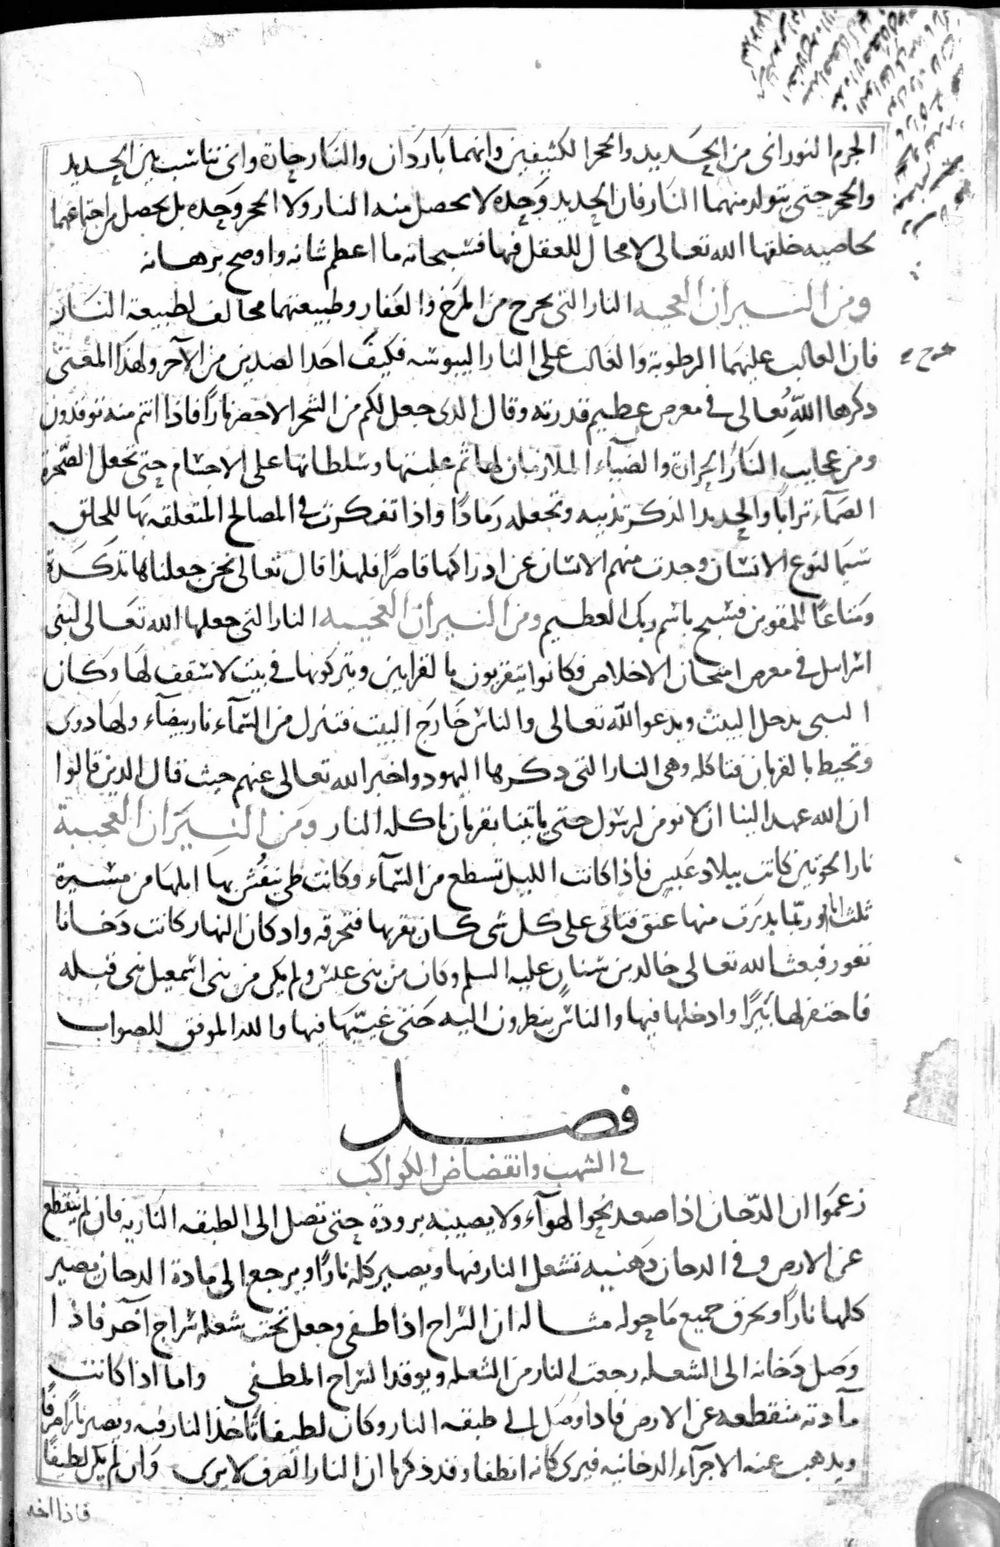 الجرم النورانى من الحديد والحجر الكثيفين وانهما باردان والنار حارة واى تناسب بين الحديد
والحجر حتى يتولد منهما النار فان الحديد وحده لا يحصل منه النار ولا الحجر وحده بل يحصل من اجتماعهما
بخاصيه خلقها الله تعالى لا مجال للعقل فيها فسبحانه ما اعظم شانه واوضح برهانه
ومن النيران العجيبه النار التى يخرج من المرخ والعفار وطبيعتهما مخالف لطبيعة النار
فان الغالب عليهما الرطوبة والغالب على النار اليبوسه فكيف احد الضدين من الآخر ولهذا المعنى
ذكرها الله تعالى فى معرض عظيم قدرته وقال الذى جعل لكم من الشجر الاخضر نارا فاذا انتم منه توقدون
ومن عجايب النار الحرارة والضياء الملازمان لها ثم غلبتها وسلطانها على الاجسام حتى تجعل الصخرة
الصماء ترابا والحديد الذكر تذيبه وتجعله رمادا واذا تفكرت فى المصالح المتعلقه بها للخلق
سيما لنوع الانسان وجدت منهم الانسان عن ادراكها قاصرا فلهذا قال تعالى نحن جعلناها تذكرة
ومتاعا للمقوين فسبح باسم ربك العظيم ومن النيران العجيبه النار التى جعلها الله تعالى لبنى
اسرائيل فى معرض امتحان الاخلاص فكانوا يتقربون بالقرابين ويتركونها فى بيت لا سقف لها وكان
النبى يدخل البيت ويدعو الله تعالى والناس خارج البيت فتنزل من السماء نار بيضاء ولها دوى
وتحيط بالقربان فتاكله وهى النار التى ذكرها اليهود واخبر الله تعالى عنهم حيث قال الذين قالوا
ان الله عهد الينا ان لا نومن لرسول حتى ياتينا بقربان تاكله النار ومن النيران العجيبة
نار الحرتين كانت ببلاد عبس فاذا كانت الليل تسطع من السماء وكانت طى تنفش بها ابلها من مسيرة
ثلث ايام وربما بدرت منها عنق فتاتى على كل شى كان بقربها فتحرقه واذ كان النهار كانت دخانا
تفور فبعث الله تعالى خالد بن سنان عليه السلم وكان من بنى عبس ولم يكن من بنى اسمعيل نبى قبله
فاحتفر لها بئرا وادخلها فيها والناس ينظرون اليه حتى غيبها فيها والله الموفق للصواب
فصل
فى الشهب وانقضاض الكواكب
زعموا ان الدخان اذا صعد نحو الهوآء ولا يصيبه برودة حتى تصل الى الطبقه الناريه فان لم ينقطع
عن الارض وفى الدخان دهنيه تشعل النار فيها ويصير كله نارا ويرجع الى مادة الدخان يصير
كلها نارا ويحرق جميع ما حوله مثاله ان السراج اذا طفى وجعل تحت شعله سراج آخر فاذا
وصل دخانه الى الشعله رجعت النار من الشعله ويوقد السراج المطفى واما اذا كانت
مآدته منقطعه عن الارض فاذا وصل الى طبقه النار وكان لطيفا تاخذ النار فيه ويصير نارا صرفا
ويذهب عنه الاجزآء الدخانيه فيرى كانه انطفا وقد ذكرنا ان النار الصرف لا يرى وان لم يكن لطيفا
فاذا اخذ